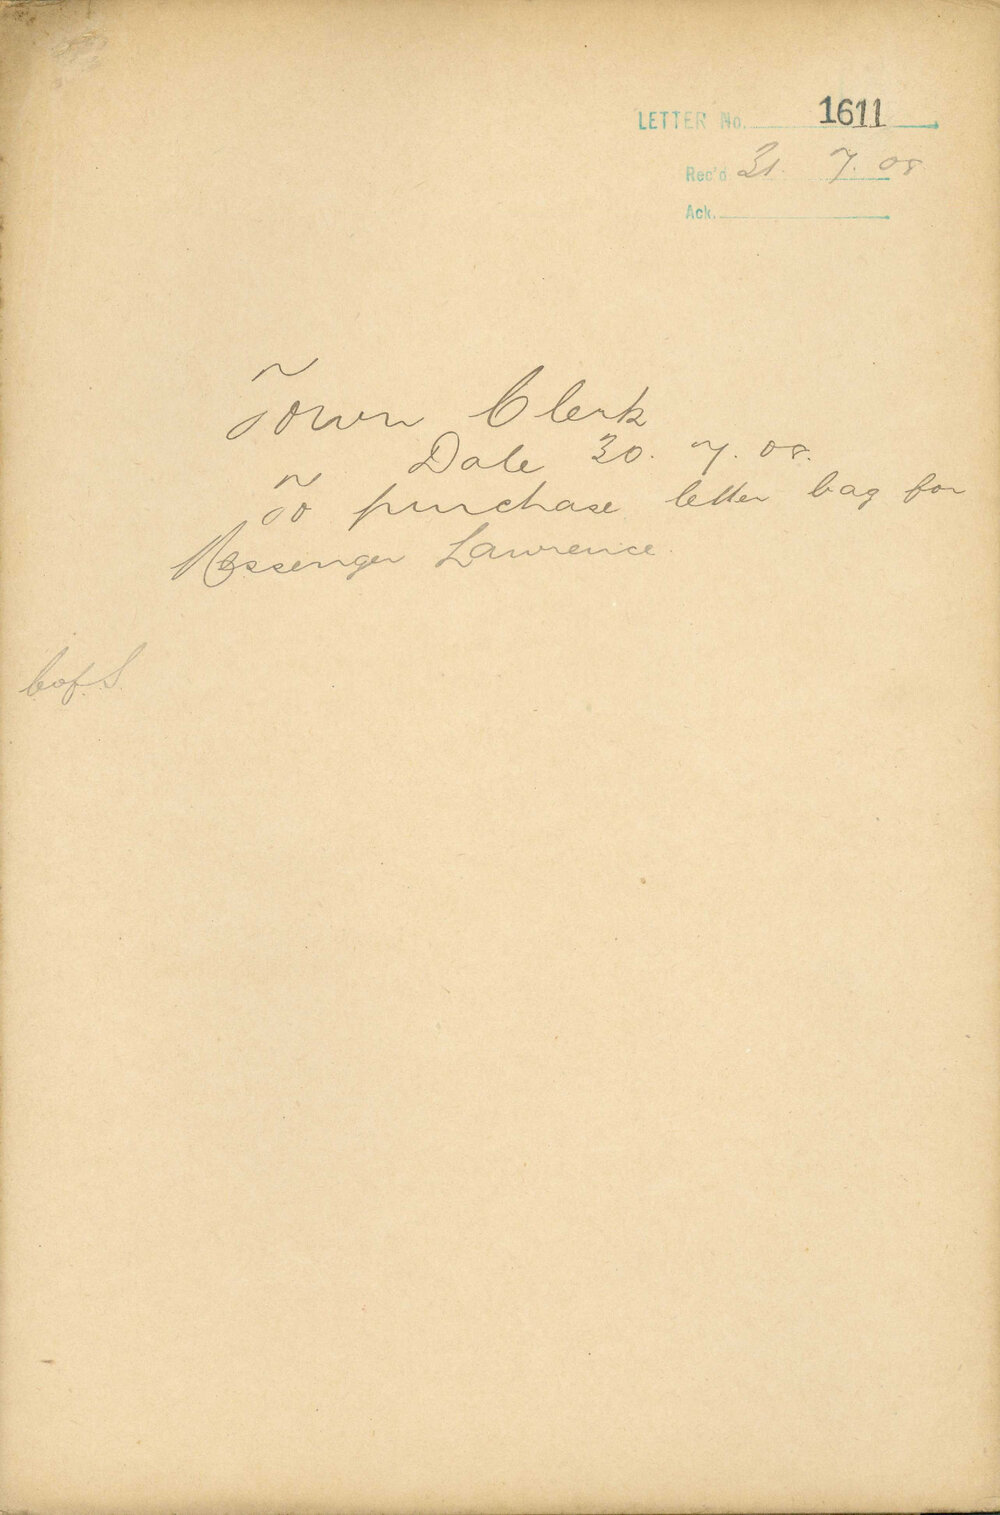 LETTER No. 1611
Rec'd 31. 7. 08
Ack.
Town Clerk
Date 30. 7. 08.
To purchase letter bag for
Messenger Lawrence.
C of S.